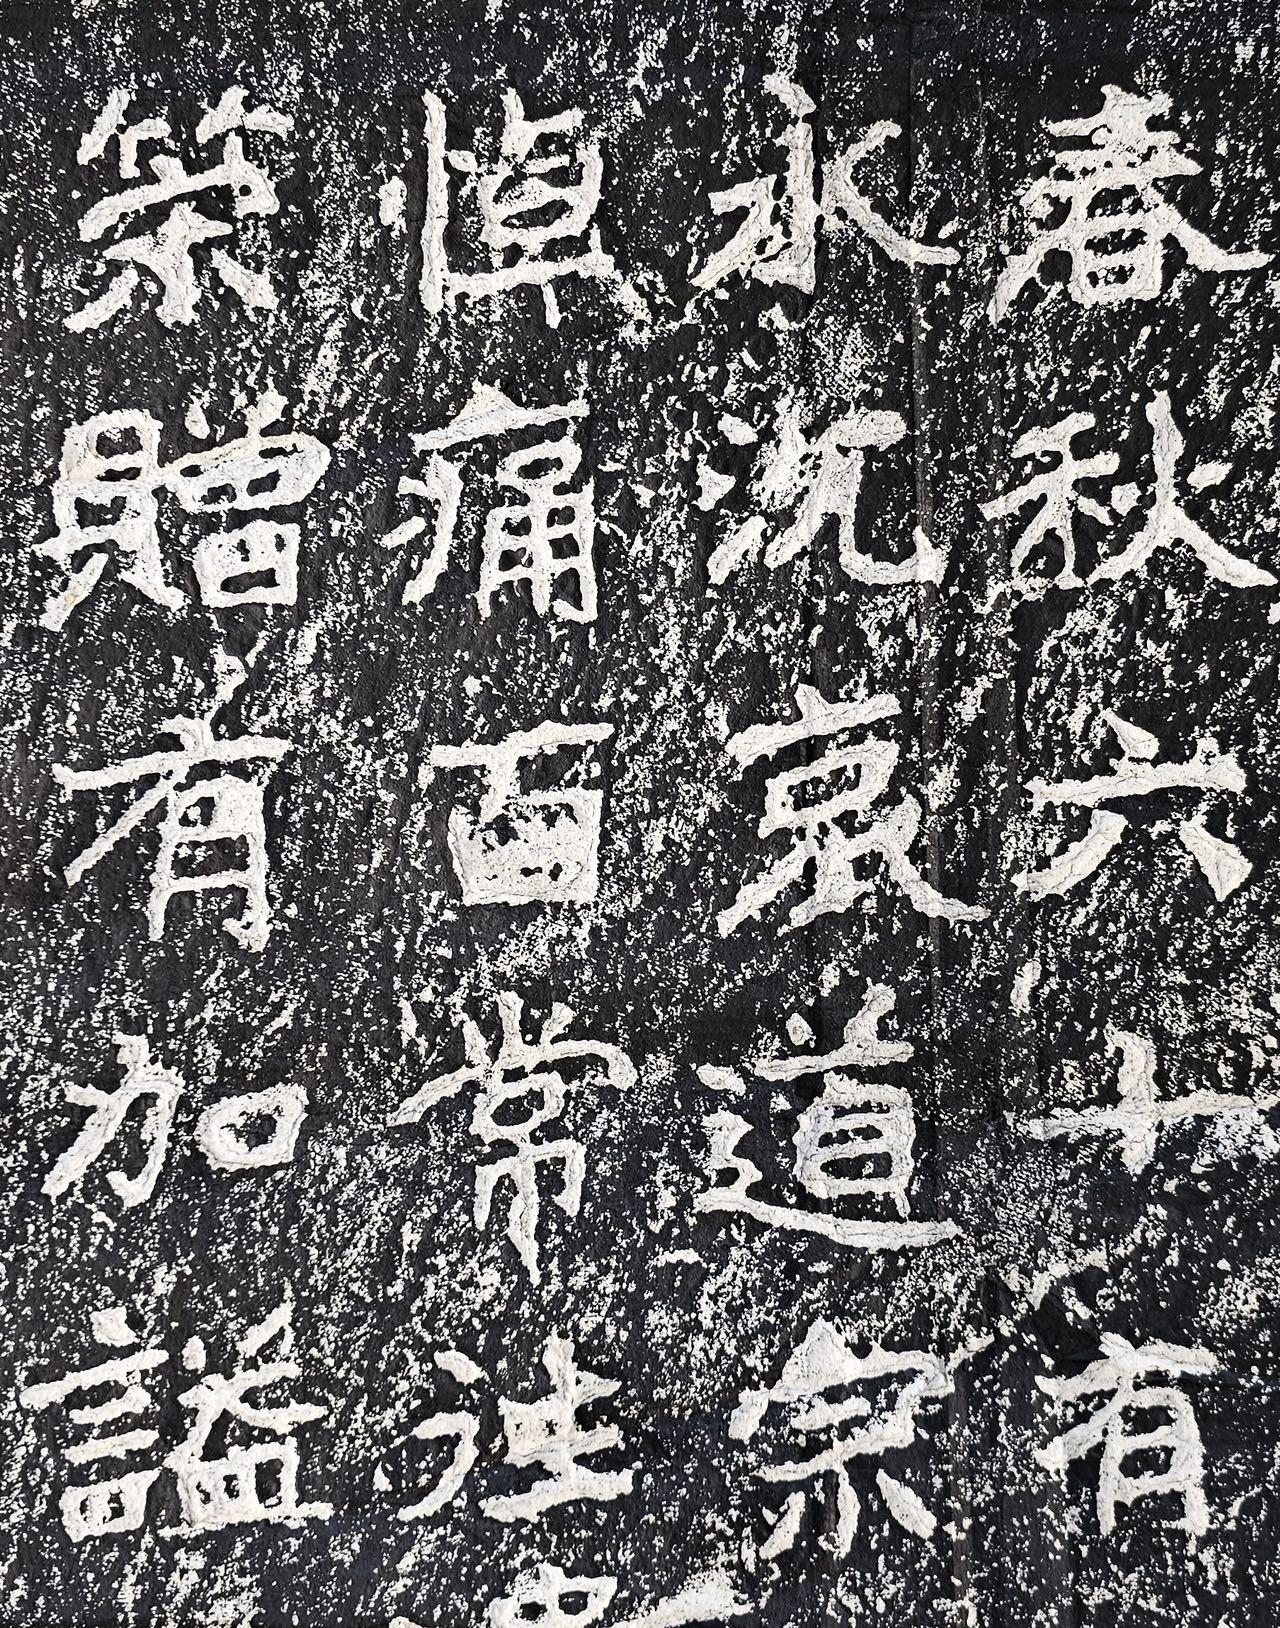 春秋六十有
永沉哀道宗
悼痛百常往
策贈有加謚